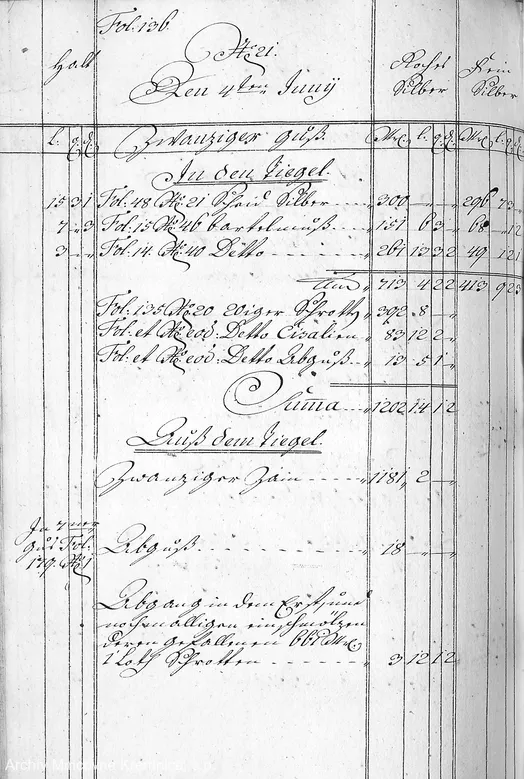 Fol: 136.
No 21.
Halt
Den 4ten Junÿ
Roches Silber
Fein Silber
l. q. d. Zwanziger Guß. Mrc. l. q. d. Mrc. l. q. d.
In den Tiegel.
15 3 1 Fol: 48 No 21 Scheid Silber 300 — — — 296 13
7 — 3 Fol: 15 No 46 bartelmuß 151 6 3 — 68 — 12
3 — — Fol: 14. No 40 Detto 261 13 3 2 49 1 2 1
Sum̃ 713 4 2 2 413 9 2 3
Fol: 135 No 20 20iger Schrott 392 8 —
Fol: et No eod: Detto Cisalien 83 12 2 —
Fol: et No eod: Detto Abguß 13 5 1 —
Sum̃a 1202 14 1 2
Auß dem Tiegel.
Zwanziger Zain 1181 2 — —
In 7ner
Guß Fol:
179. No 1
Abguß 18 — — —
Abgang in dem Erst, und
nochmalligen einschmölzen
deren gefallenen 661 Mrc.
1 Loth Schrotten 3 12 1 2
Archiv Mincovne Kremnica, š. p.